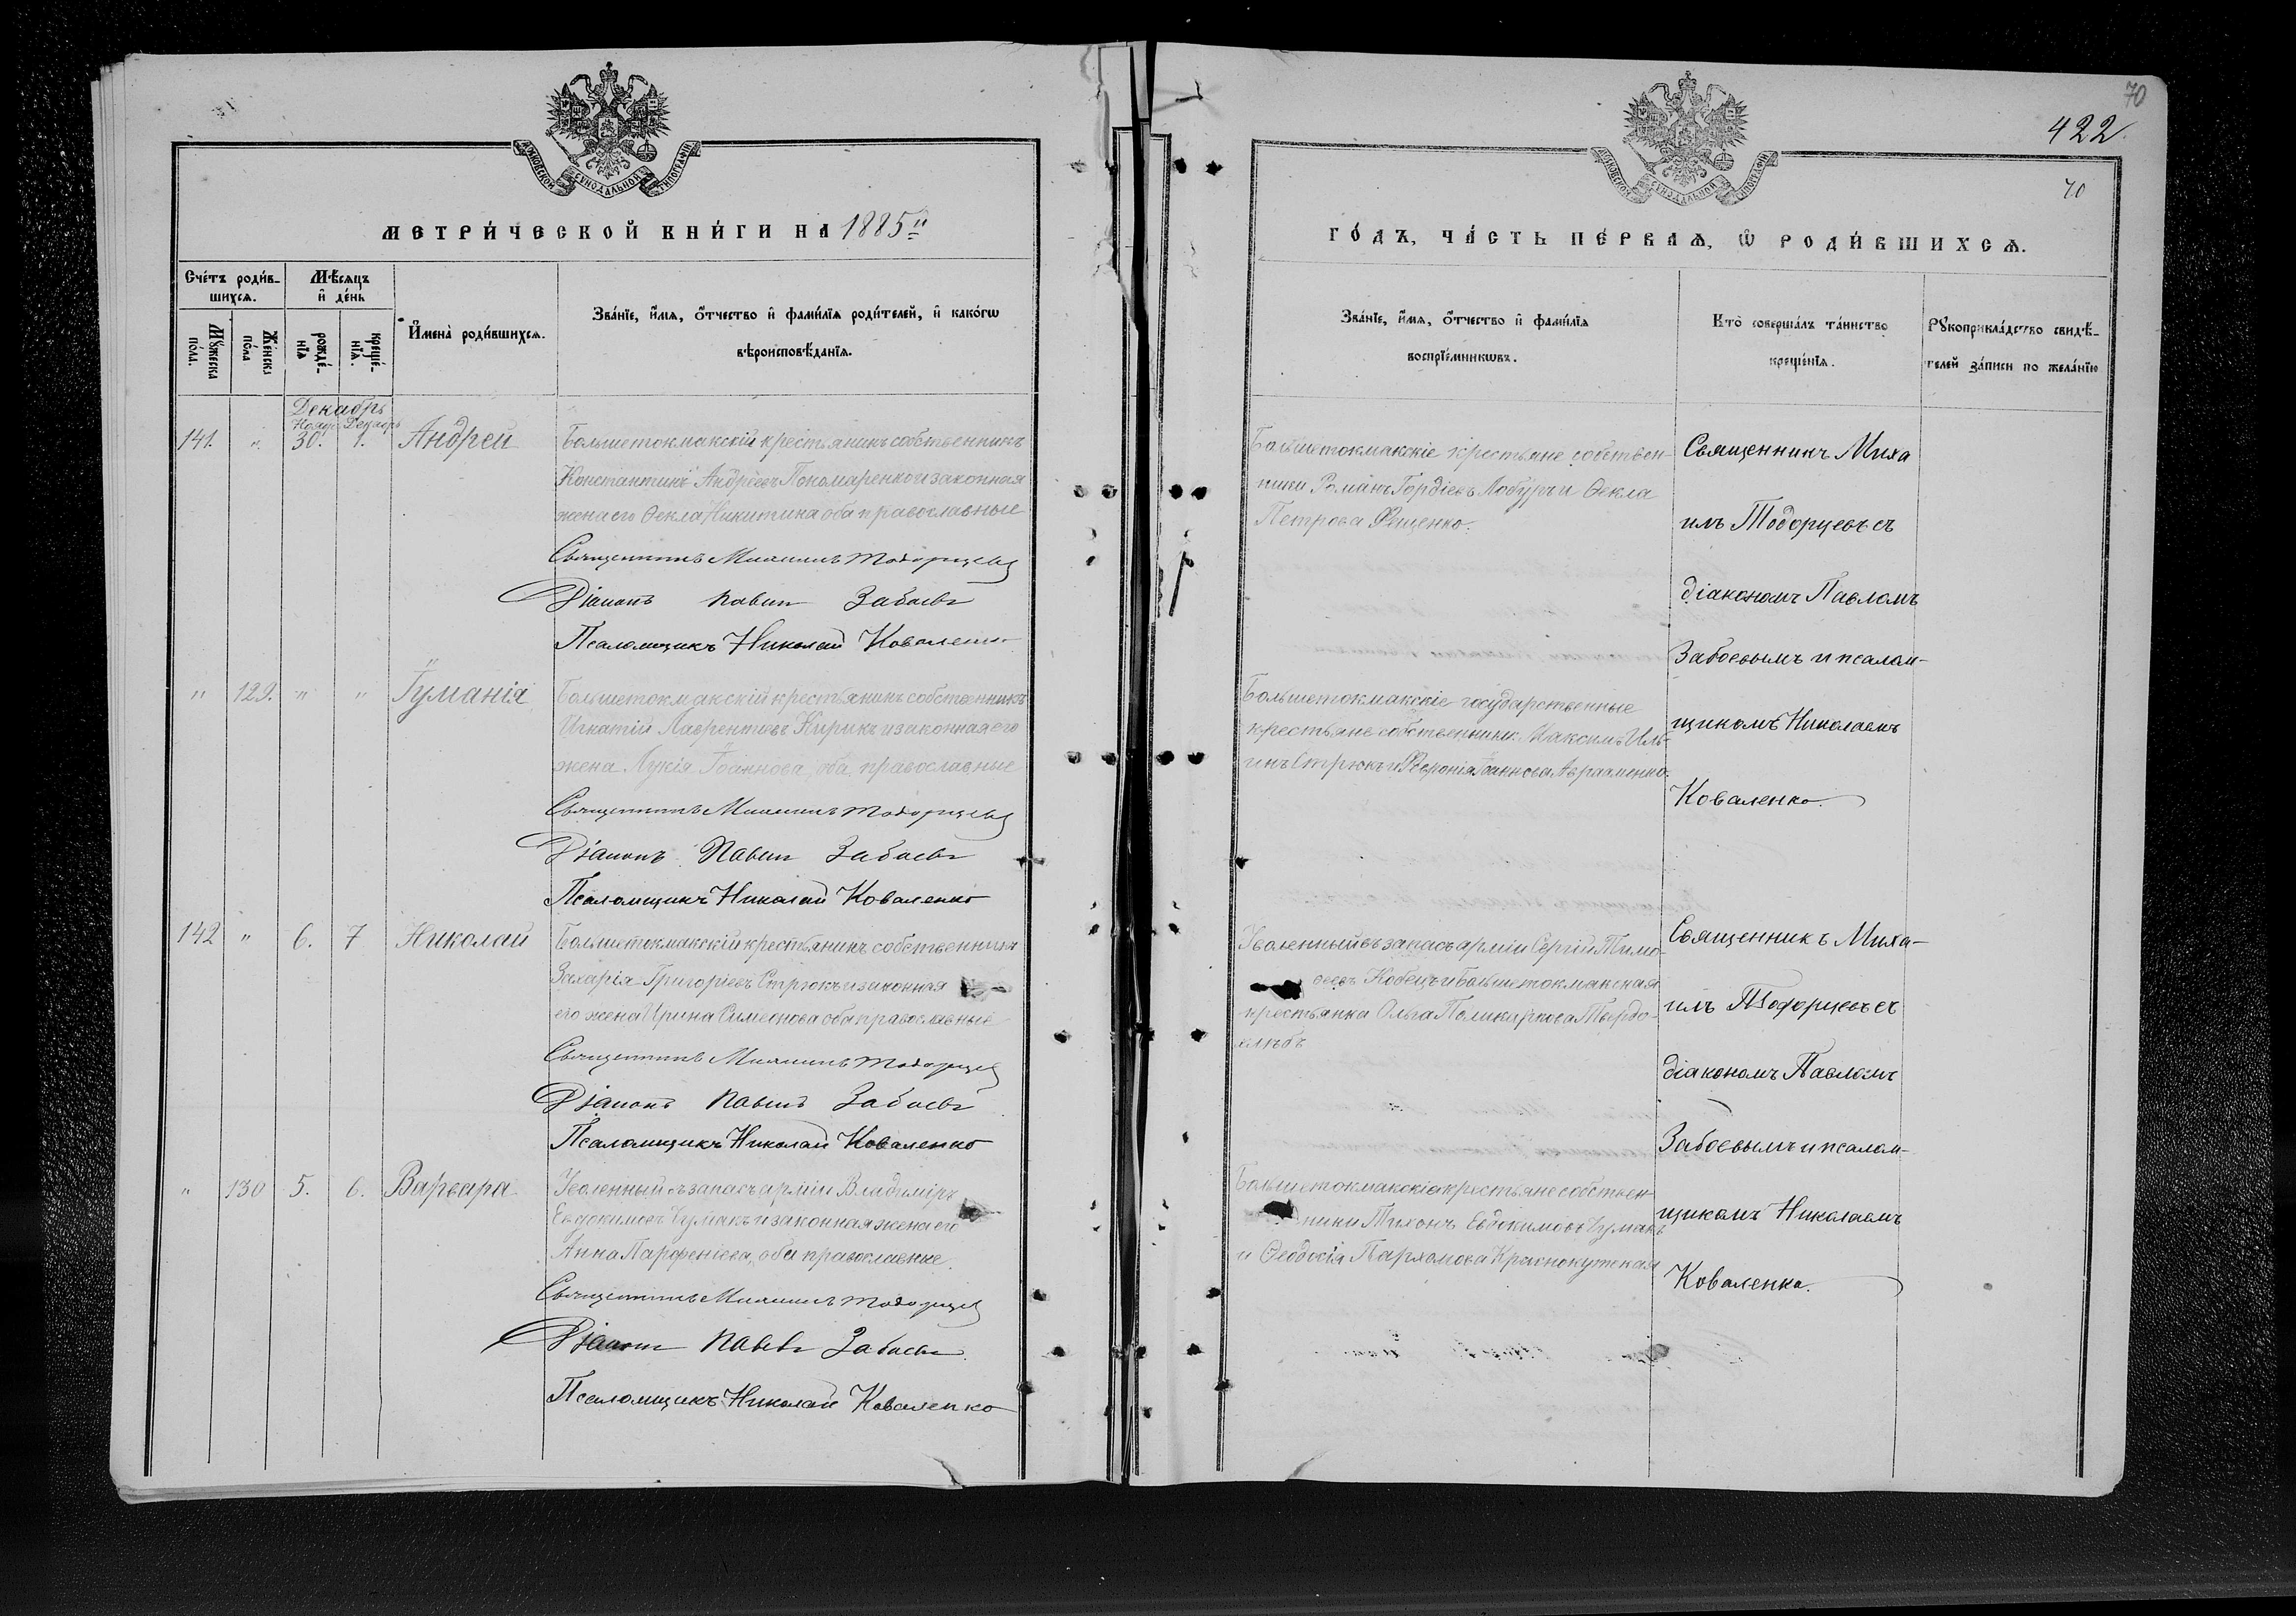 МОСКОВСКОЙ СѴНОДАЛЬНОЙ ТИПОГРАФІИ
МЕТРИ́ЧЕСКОЙ КНИ́ГИ НА 1885й
Сче́тъ роди́в-
шихся.
Мꙋ́жеска
по́ла.
Же́нска
по́ла
Мѣ́сяцъ
и҆ де́нь
рожде́-
нїѧ
креще́-
нїѧ.
И҆мена̀ роди́вшихсѧ.
Зва́нїе, и҆́мѧ, ѻ҆́тчество и҆ фами́лїѧ роди́телей, и҆ како́гѡ
вѣроисповѣ́данїѧ.
Декабрь
Нояб. Декабрь
141. " 30. 1. Андрей
Большетокмакскій крестьянинъ собственникъ
Константинъ Андреевъ Пономаренко и законная
жена его Ѳекла Никитина оба православные
Священникъ Михаилъ Тодорцевъ
Діаконъ Павелъ Забоевъ
Псаломщикъ Николай Коваленко
" 129. " "
Большетокмакскій крестьянинъ собственникъ
Игнатій Лаврентьевъ Кирикъ и законная его
жена Лукія Іоаннова, оба православные
Священникъ Михаилъ Тодорцевъ
Діаконъ Павелъ Забоевъ
Псаломщикъ Николай Коваленко
142 " 6. 7 Николай
Большетокмакскій крестьянинъ собственникъ
Захарія Григоріевъ Стрюкъ и законная
его жена Ирина Симеонова оба православные
Священникъ Михаилъ Тодорцевъ
Діаконъ Павелъ Забоевъ
Псаломщикъ Николай Коваленко
" 130 5. 6. Варвара
Уволенный въ запасъ арміи Владиміръ
Евдокимовъ Чумакъ и законная жена его
Анна Парфеніева, оба православные.
Священникъ Михаилъ Тодорцевъ
Діаконъ Павелъ Забоевъ
Псаломщикъ Николай Коваленко
70
422
70
МОСКОВСКОЙ СѴНОДАЛЬНОЙ ТИПОГРАФІИ
ГО́ДЪ, ЧА́СТЬ ПЕ́РВАѦ, Ѽ РОДИ́ВШИХСѦ.
Зва́нїе, и҆́мѧ, ѻ҆́тчество и҆ фами́лїѧ
воспрїе́мникѡвъ.
Кто̀ соверша́лъ та́инство
креще́нїѧ.
Рꙋкоприкла́дство свидѣ́-
телей за́писи по жела́нїю
Большетокмакскіе крестьяне собствен-
ники Романъ Гордіевъ Лобуръ и Ѳекла
Петрова Фещенко.
Священникъ Миха
илъ Тодорцевъ съ
діакономъ Павломъ
Забоевымъ и псалом-
щикомъ Николаемъ
Коваленко.
Большетокмакскіе государственные
крестьяне собственники Максимъ Иль-
инъ Стрюкъ и Февронія Іоаннова Авраменко.
Уволенный въ запасъ арміи Сергій Тимо-
ѳеевъ Кобецъ и Большетокмакская
крестьянка Ольга Поликарпова Твердо-
хлѣбъ
Священникъ Миха-
илъ Тодорцевъ съ
діакономъ Павломъ
Забоевымъ и псалом-
щикомъ Николаемъ
Коваленко.
Большетокмакскіе крестьяне собствен-
ники Тихонъ Евдокимовъ Чумакъ
и Ѳеодосія Пархомова Краснокутская